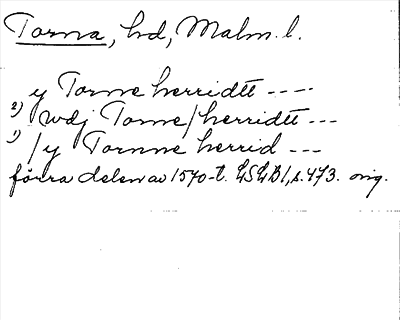 Torna, hd, Malm. l.
y Torne herridtt ----
2) wdj Torne/herridtt ---
1) /y Tornne herrid ---
förra delen av 1570-t. LSLB1, s. 473. orig.